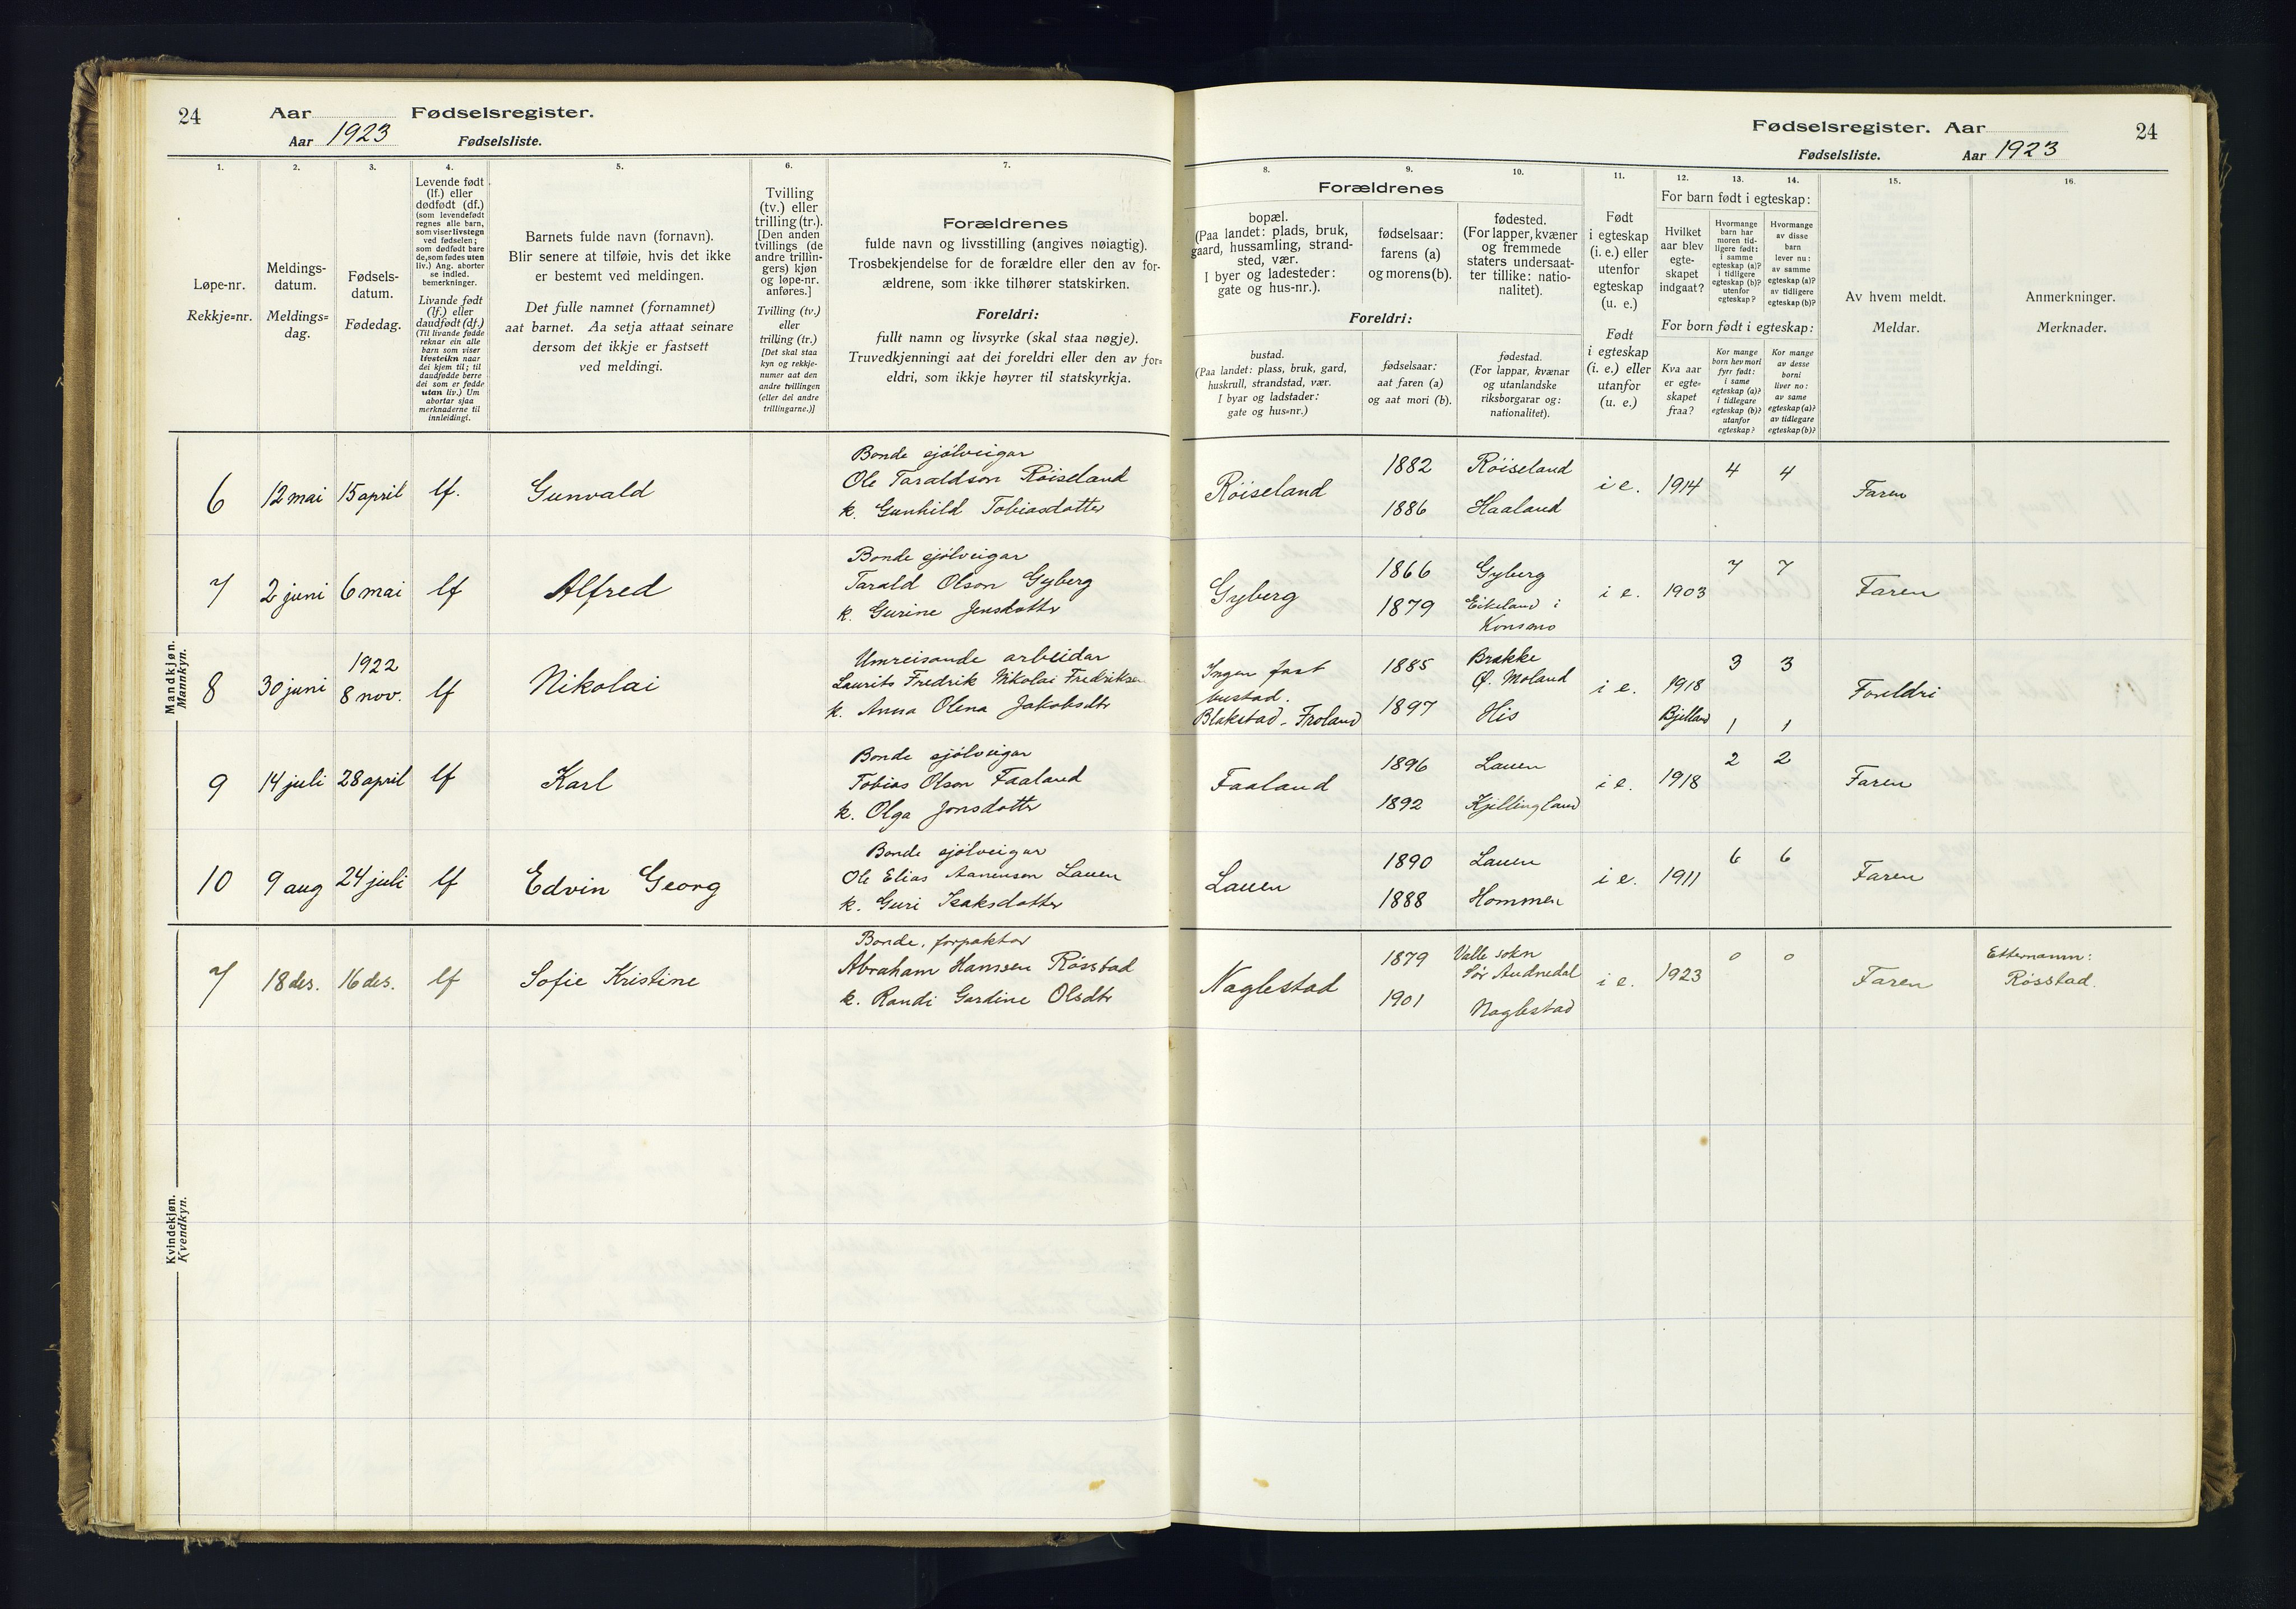 24
Aar Fødselsregister.
Aar 1923 Fødselsliste.
1.
2.
3.
4.
5.
6.
7.
Løpe-nr.
Rekkje=nr.
Meldings-
datum.
Meldings=
dag.
Fødsels-
datum.
Fødedag.
Levende født
(lf.) eller
dødfødt (df.)
(som levendefødt
regnes alle barn,
som viser livstegn
ved fødselen;
som dødfødt bare
de, som fødes uten
liv.) Ang. aborter
se indled.
bemerkninger.
Livande født
(lf.) eller
daudfødt (df.)
(Til livande fødde
reknar ein alle
barn som viser
livsteikn naar
dei kjem til; til
daudfødde berre
dei som er fødde
utan liv.) Um
abortar sjaa
merknaderne til
innleidingi.
Barnets fulde navn (fornavn).
Blir senere at tilføie, hvis det ikke
er bestemt ved meldingen.
Det fulle namnet (fornamnet)
aat barnet. Aa setja attaat seinare
dersom det ikkje er fastsett
ved meldingi.
Tvilling
(tv.) eller
trilling (tr.).
[Den anden
tvillings (de
andre trillin-
gers) kjøn
og løpe-nr.
anføres.]
Tvilling (tv.)
eller
trilling (tr.)
[Det skal staa
kyn og rekkje-
numer aat den
andre tvillingen
(eller dei andre
trillingarne.)]
Forældrenes
fulde navn og livsstilling (angives nøiagtig).
Trosbekjendelse for de forældre eller den av for-
ældrene, som ikke tilhører statskirken.
Foreldri:
fullt namn og livsyrke (skal staa nøgje).
Truvedkjenningi aat dei foreldri eller den av for=
eldri, som ikkje høyrer til statskyrkja.
Mandkjøn.
Mannkyn.
6 12 mai 15 april lf. Gunvald
Bonde sjölveigar
Ole Taraldson Röiseland
k. Gunhild Tobiasdotter
7 2 juni 6 mai lf Alfred
Bonde sjölveigar
Tarald Olson Gyberg
k. Gurine Jensdotter
8 30 juni 1922
8 nov. lf Nikolai
Umreisande arbeidar
Laurits Fredrik Nikolai Fredriksen
k. Anna Olena Jakobsdtr
9 14 juli 28 april lf Karl
Bonde sjölveigar
Tobias Olson Faaland
k. Olga Jonsdotter
10 9 aug 24 juli lf Edvin Georg
Bonde sjölveigar
Ole Elias Aanensen Lauen
k. Guri Isaksdotter
Kvindekjøn.
Kvendkyn.
7 18 des. 16 des. lf Sofie Kristine
Bonde, forpaktar
Abraham Hansen Rösstad
k. Randi Gardine Olsdtr
Fødselsregister. Aar
24
Fødselsliste. Aar 1923
8.
9.
10.
11.
12.
13.
14.
15.
16.
Forældrenes
bopæl.
(Paa landet: plads, bruk,
gaard, hussamling, strand-
sted, vær.
I byer og ladesteder:
gate og hus-nr.).
fødselsaar:
farens (a)
og morens (b).
fødested.
(For lapper, kvæner
og fremmede
staters undersaat-
ter tillike: natio-
nalitet).
Foreldri:
bustad.
(Paa landet: plass, bruk, gard,
huskrull, strandstad, vær.
I byar og ladstader:
gate og hus=nr.)
fødselsaar:
aat faren (a)
og aat mori (b).
fødestad.
(For lappar, kvænar
og utanlandske
riksborgarar og:
nationalitet).
Født
i egteskap
(i. e.) eller
utenfor
egteskap
(u. e.)
Født
i egteskap
(i. e.) eller
utanfor
(u. e.)
For barn født i egteskap:
Hvilket
aar blev
egte-
skapet
indgaat?
Hvormange
barn har
moren tid-
ligere født:
i samme
egteskap (a)?
i tidligere
egteskap (b)?
utenfor
egteskap?
Hvormange
av disse
barn
lever nu:
av samme
egteskap (a)?
av tidligere
egteskap (b)?
For born født i egteskap:
Kva aar
er egte-
skapet
fraa?
Kor mange
born hev mori
fyrr født:
i same
egteskap (a)?
i tidlegare
egteskap (b)?
utanfor
egteskap?
Kor mange
av desse
borni
liver no:
av same
egteskap (a)?
av tidlegare
egteskap (b)?
Av hvem meldt.
Meldar.
Anmerkninger.
Merknader.
Röiseland 1882 Röiseland i e. 1914 4 4 Faren
1886 Haaland
Gyberg 1866 Gyberg i e. 1903 7 7 Faren
1879 Eikeland i
Konsmo
Ingen fast
bustad.
Blakstad - Froland
1885 Brække
Ø. Moland
1897 His
i e. 1918
Bjelland
3 3
1 1
Foreldri
Faaland 1896 Lauen i e. 1918 2 2 Faren
1892 Kjellingland
Lauen 1890 Lauen i e. 1911 6 6 Faren
1888 Hommen
Naglestad 1879 Valle sokn
Sör Audnedal
1901 Naglestad
i e. 1923 0 0 Faren
Etternamn:
Rösstad.